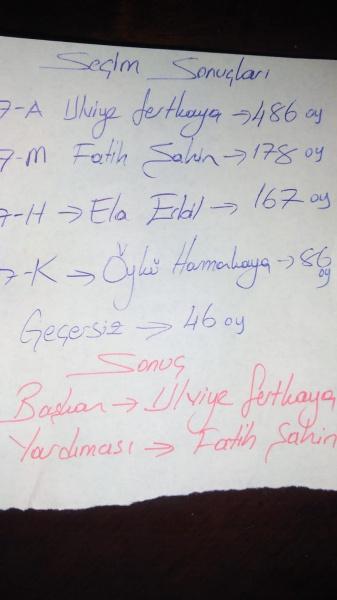 Seçim Sonuçları
7-A Ulviye Sertkaya → 486 oy
7-M Fatih Şahin → 178 oy
7-H → Ela Erbil → 167 oy
7-K → Öykü Harmankaya → 86 oy
Geçersiz → 46 oy
Sonuç
Başkan → Ulviye Sertkaya
Yardımcısı → Fatih Şahin